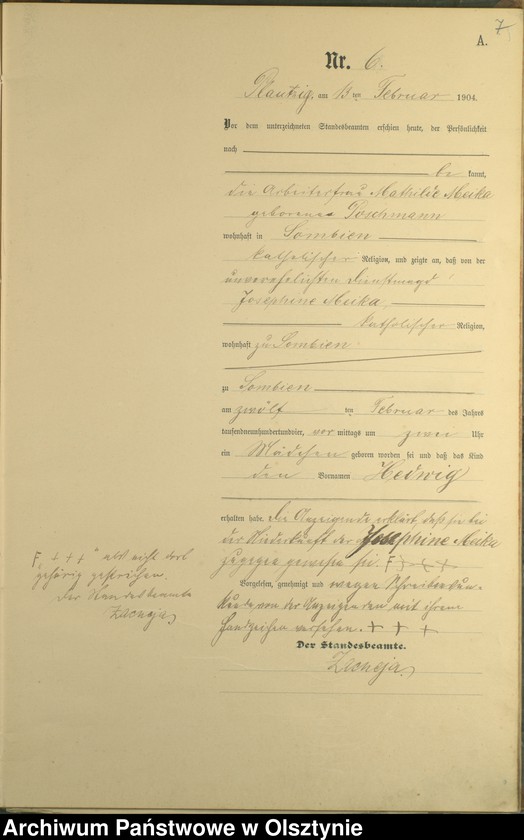 7
A.
Nr. 6.
Plautzig, am 13 ten Februar 1904.
Vor dem unterzeichneten Standesbeamten erschien heute, der Persönlichkeit
nach
be kannt,
die Arbeiterfrau Mathilde Meika
geborene Poschmann
wohnhaft in Sombien
katholischer Religion, und zeigte an, daß von der
unverehelichten Dienstmagd
Josephine Meika
katholischer Religion,
wohnhaft zu Sombien
zu Sombien
am zwölf ten Februar des Jahres
tausendneunhundertundvier, vor mittags um zwei Uhr
ein Mädchen geboren worden sei und daß das Kind
den Vornamen Hedwig
erhalten habe. Die Anzeigende erklärt, daß sie bei
der Niederkunft der Josephine Meika
zugegen gewesen sei. F + + +
Vorgelesen, genehmigt und wegen Schreibunkun-
de von der Anzeigenden mit ihrem
Handzeichen versehen. + + +
Der Standesbeamte.
F „+ + +" als nicht dort
gehörig gestrichen.
Der Standesbeamte
Archiwum Państwowe w Olsztynie